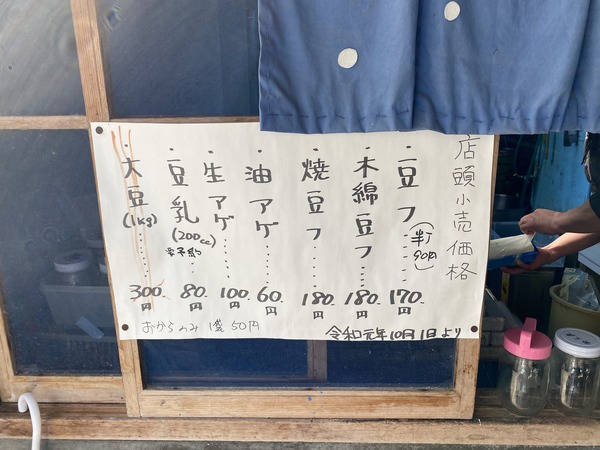 店頭小売価格
・豆フ(半丁90円)……170.円
・木綿豆フ……180.円
・焼豆フ……180.円
・油アゲ……60.円
・生アゲ……100.円
・豆乳(200cc)要予約……80.円
・大豆(1kg)……300.円
おからのみ 1袋 50円
令和元年10月1日より